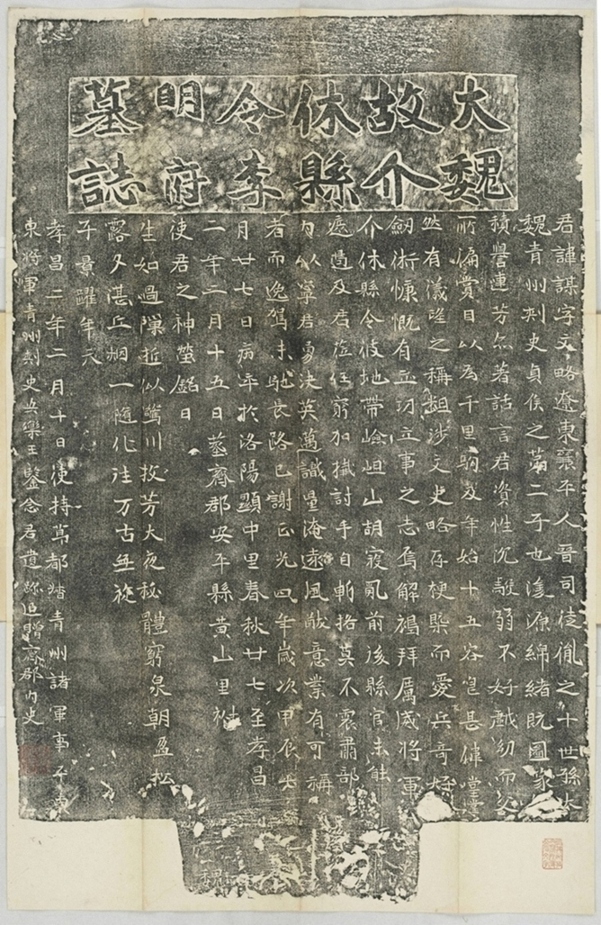 大魏
故介
休縣
令李
明府
墓誌
君諱謀字文略遼東襄平人晉司徒胤之十世孫大
魏青州刺史貞侯之第二子也濬源綿緒既圖家
積譽連芳尒著話言君資性沉駿弱不好戲幼而父
所偏賞目以為千里駒及年始十五容皃甚偉堂堂
然有儀望之稱粗涉文史略存梗槩而愛兵奇好
劍術慷慨有立功立事之志焉解褐拜厲威將軍
介休縣令彼地帶嶮岨山胡寇亂前後縣官未能
遮遏及君莅任窮加撗討手自斬挌莫不震肅部
內以寧君勇決英邁識量淹遠風猷意業有可稱
者而逸駕未馳長路已謝正光四年歲次甲辰十
月廿七日病卒於洛陽顯中里春秋廿七至孝昌
二年二月十五日葬齊郡安平縣黃山里袝
使君之神塋銘曰
生如過隙逝似驚川牧芳大夜秘體窮泉朝盈松
露夕湛丘烟一隨化往万古無旋
子景躍年六
孝昌二年二月十日使持節都督青州諸軍事平
東將軍青州刺史安樂王鑒念君遺跡追贈齊郡內史